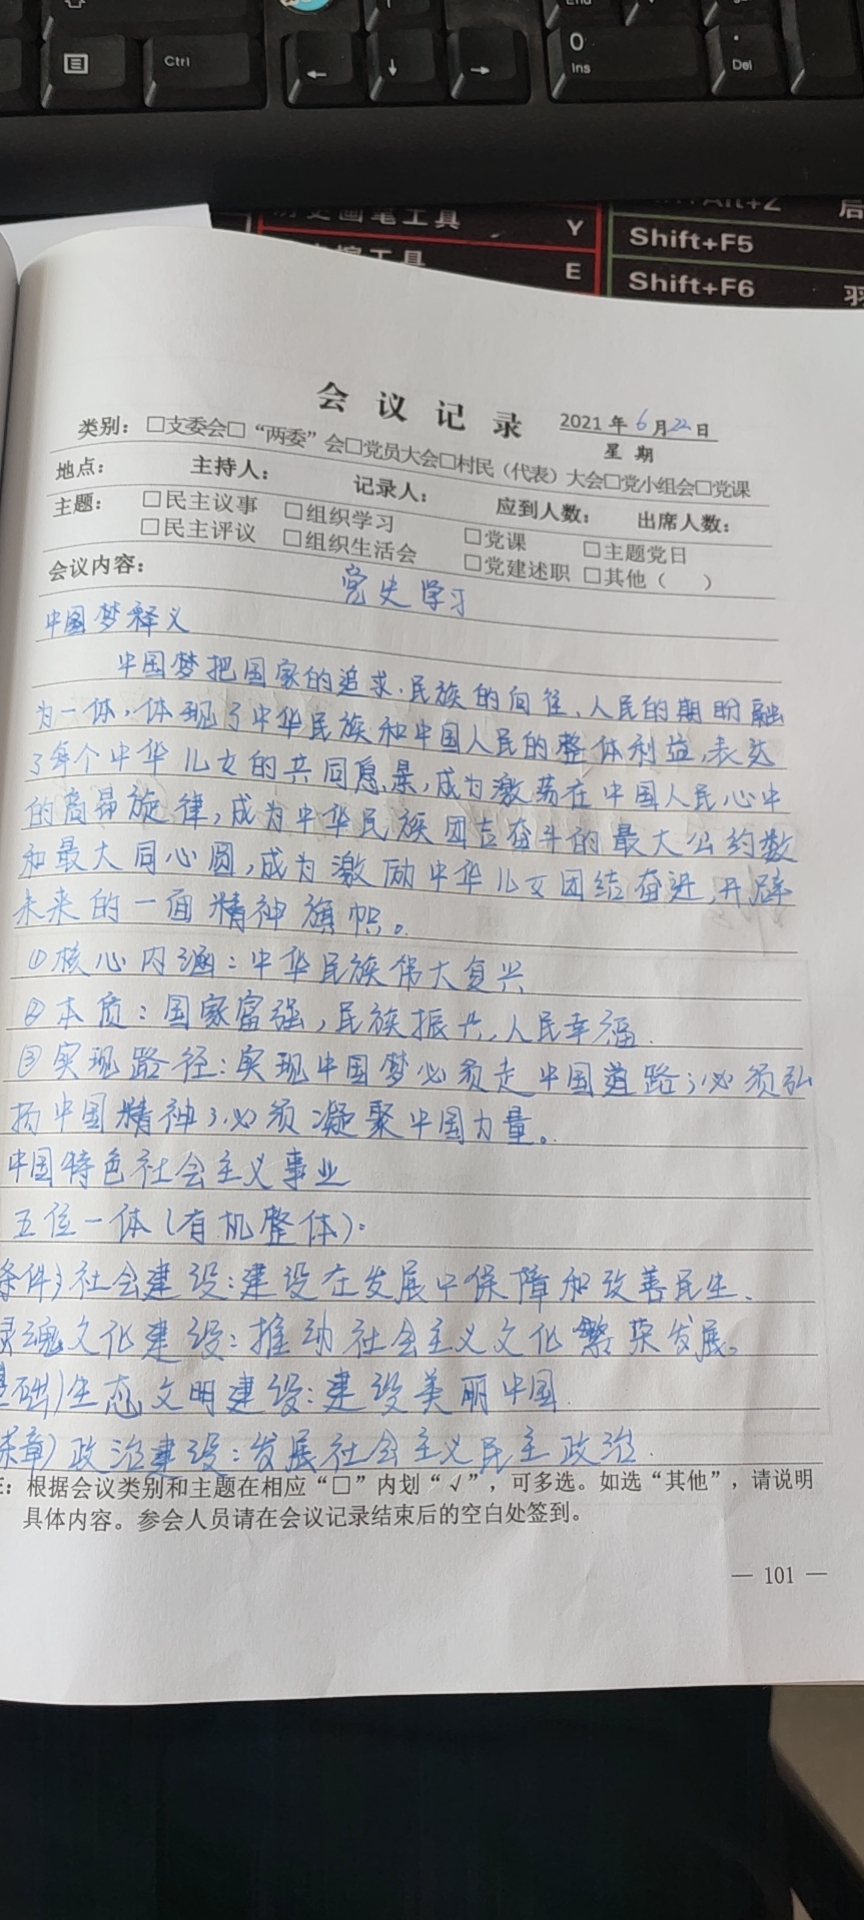 Ctrl
←
↓
→
0
Ins
.
Del
历史画笔工具
Y
E
Shift+F5
Shift+F6
后
会议记录
2021年6月22日
星期
类别：□支委会□“两委”会□党员大会□村民（代表）大会□党小组会□党课
地点： 主持人： 记录人： 应到人数： 出席人数：
主题： □民主议事 □组织学习 □党课 □主题党日
□民主评议 □组织生活会 □党建述职 □其他（ ）
会议内容：
党史学习
中国梦释义
中国梦把国家的追求、民族的向往、人民的期盼融
为一体，体现了中华民族和中国人民的整体利益，表达
了每个中华儿女的共同愿景，成为激荡在中国人民心中
的高昂旋律，成为中华民族团结奋斗的最大公约数
和最大同心圆，成为激励中华儿女团结奋进、开辟
未来的一面精神旗帜。
①核心内涵：中华民族伟大复兴
②本质：国家富强，民族振兴，人民幸福.
③实现路径：实现中国梦必须走中国道路；必须弘
扬中国精神；必须凝聚中国力量。
中国特色社会主义事业
五位一体（有机整体）：
条件）社会建设：建设在发展中保障和改善民生.
灵魂文化建设：推动社会主义文化繁荣发展。
基础）生态文明建设：建设美丽中国.
保章）政治建设：发展社会主义民主政治.
注：根据会议类别和主题在相应“□”内划“√”，可多选。如选“其他”，请说明
具体内容。参会人员请在会议记录结束后的空白处签到。
— 101 —